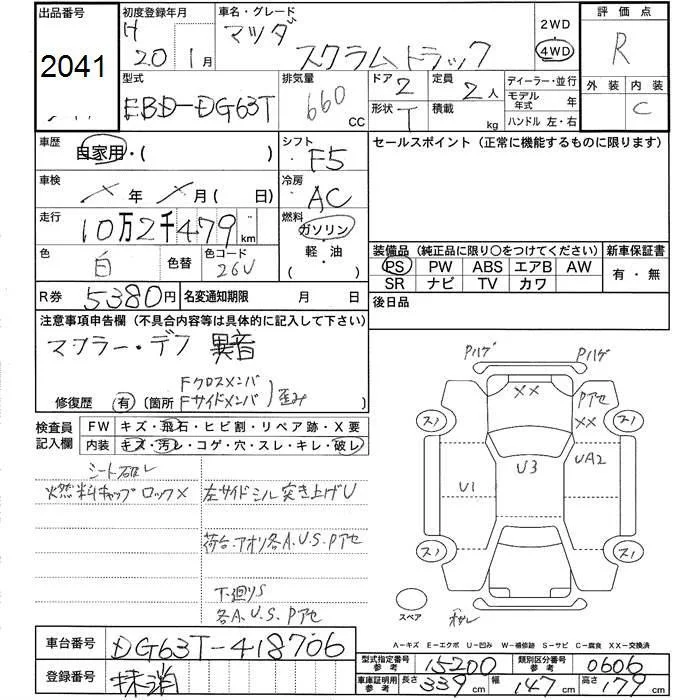 出品番号
2041
初度登録年月
H
20 1月
車名・グレード
マツダ
スクラムトラック
2WD
4WD
評価点
R
外装 内装
C
型式
EBD-DG63T
排気量
660
CC
ドア 2
形状 T
定員 2人
積載 kg
ディーラー・並行
モデル年式 年
ハンドル 左・右
車歴
自家用・( )
シフト
F5
車検
× 年 × 月( 日)
冷房
AC
走行
10万2千479km
燃料
ガソリン
軽・油
( )
色
白
色替
色コード
26U
R券 5380円
名変通知期限 月 日
セールスポイント(正常に機能するものに限ります)
装備品(純正品に限り○をつけてください)
PS PW ABS エアB AW
SR ナビ TV カワ
新車保証書
有・無
後日品
注意事項申告欄(不具合内容等は具体的に記入して下さい)
マフラー・デフ 異音
修復歴 有 〔箇所
Fクロスメンバ
Fサイドメンバ
歪み
検査員記入欄
FW キズ・飛石・ヒビ割・リペア跡・X要
内装 キズ・汚レ・コゲ・穴・スレ・キレ・破レ
シート破レ
燃料キャップ ロック×
左サイドシル突き上げU
荷台.アオリ各A.U.S.Pアセ
下廻りS
各A.U.S.Pアセ
Pハゲ
Pハゲ
XX
Pアセ
XX
スノ
スノ
U1
U3
UA2
スノ
スノ
スペア
A−キズ E−エクボ U−凹み W−補修跡 S−サビ C−腐食 XX−交換済
車台番号 DG63T-418706
登録番号 抹消
型式指定番号 参考 15200
類別区分番号 参考 0606
車庫証明用 参考 長さ 339cm 幅 147cm 高さ 179cm